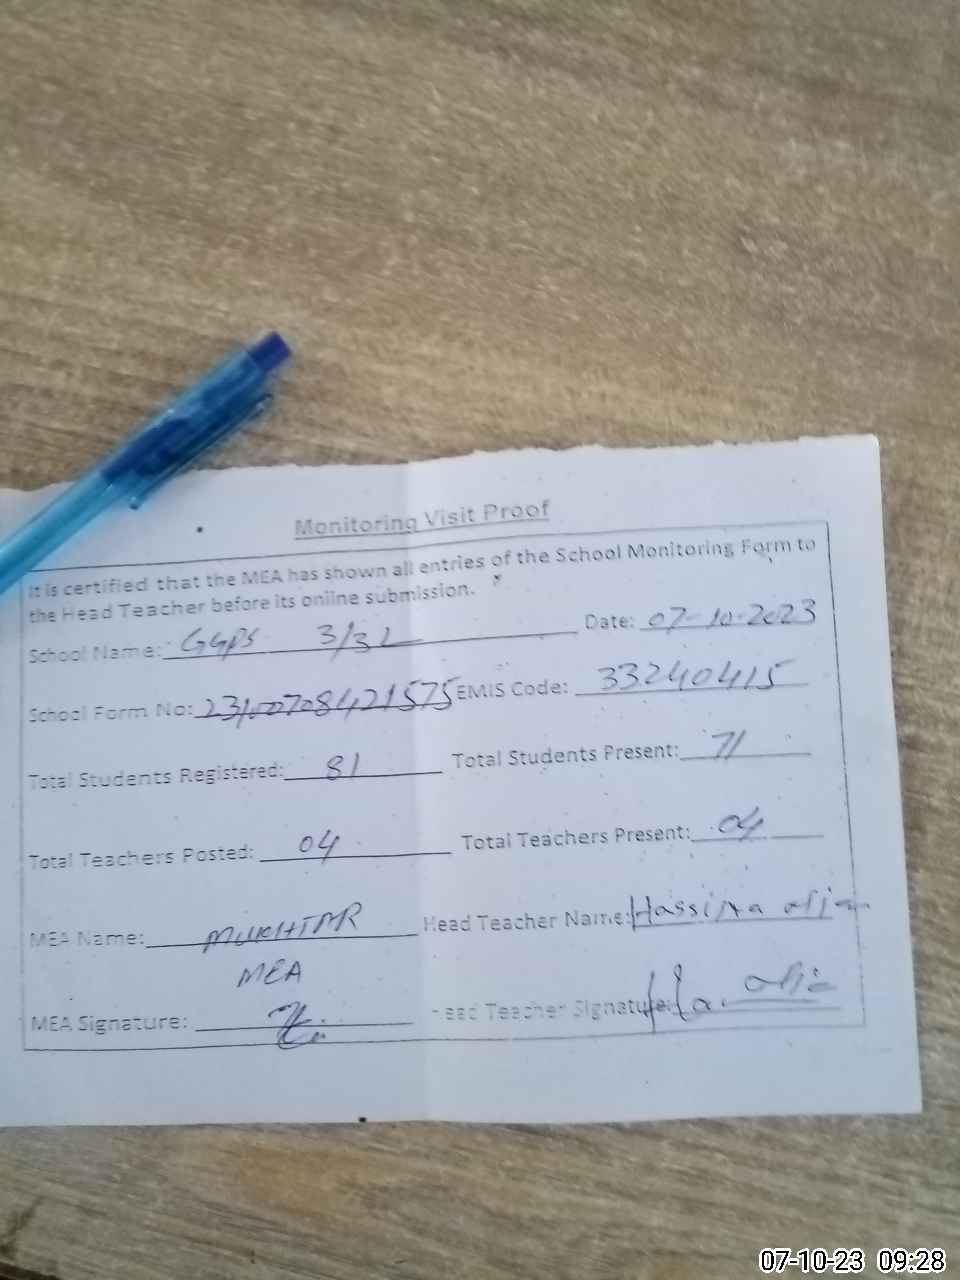 Monitoring Visit Proof
It is certified that the MEA has shown all entries of the School Monitoring Form to
the Head Teacher before its online submission.
School Name: GGPS 3/3L Date: 07-10-2023
School Form No: EMIS Code: 33240415
Total Students Registered: 81 Total Students Present: 71
Total Teachers Posted: 04 Total Teachers Present: 04
MEA Name: MUKHTAR Head Teacher Name: Hassina
MEA
MEA Signature: Head Teacher Signature:
07-10-23 09:28